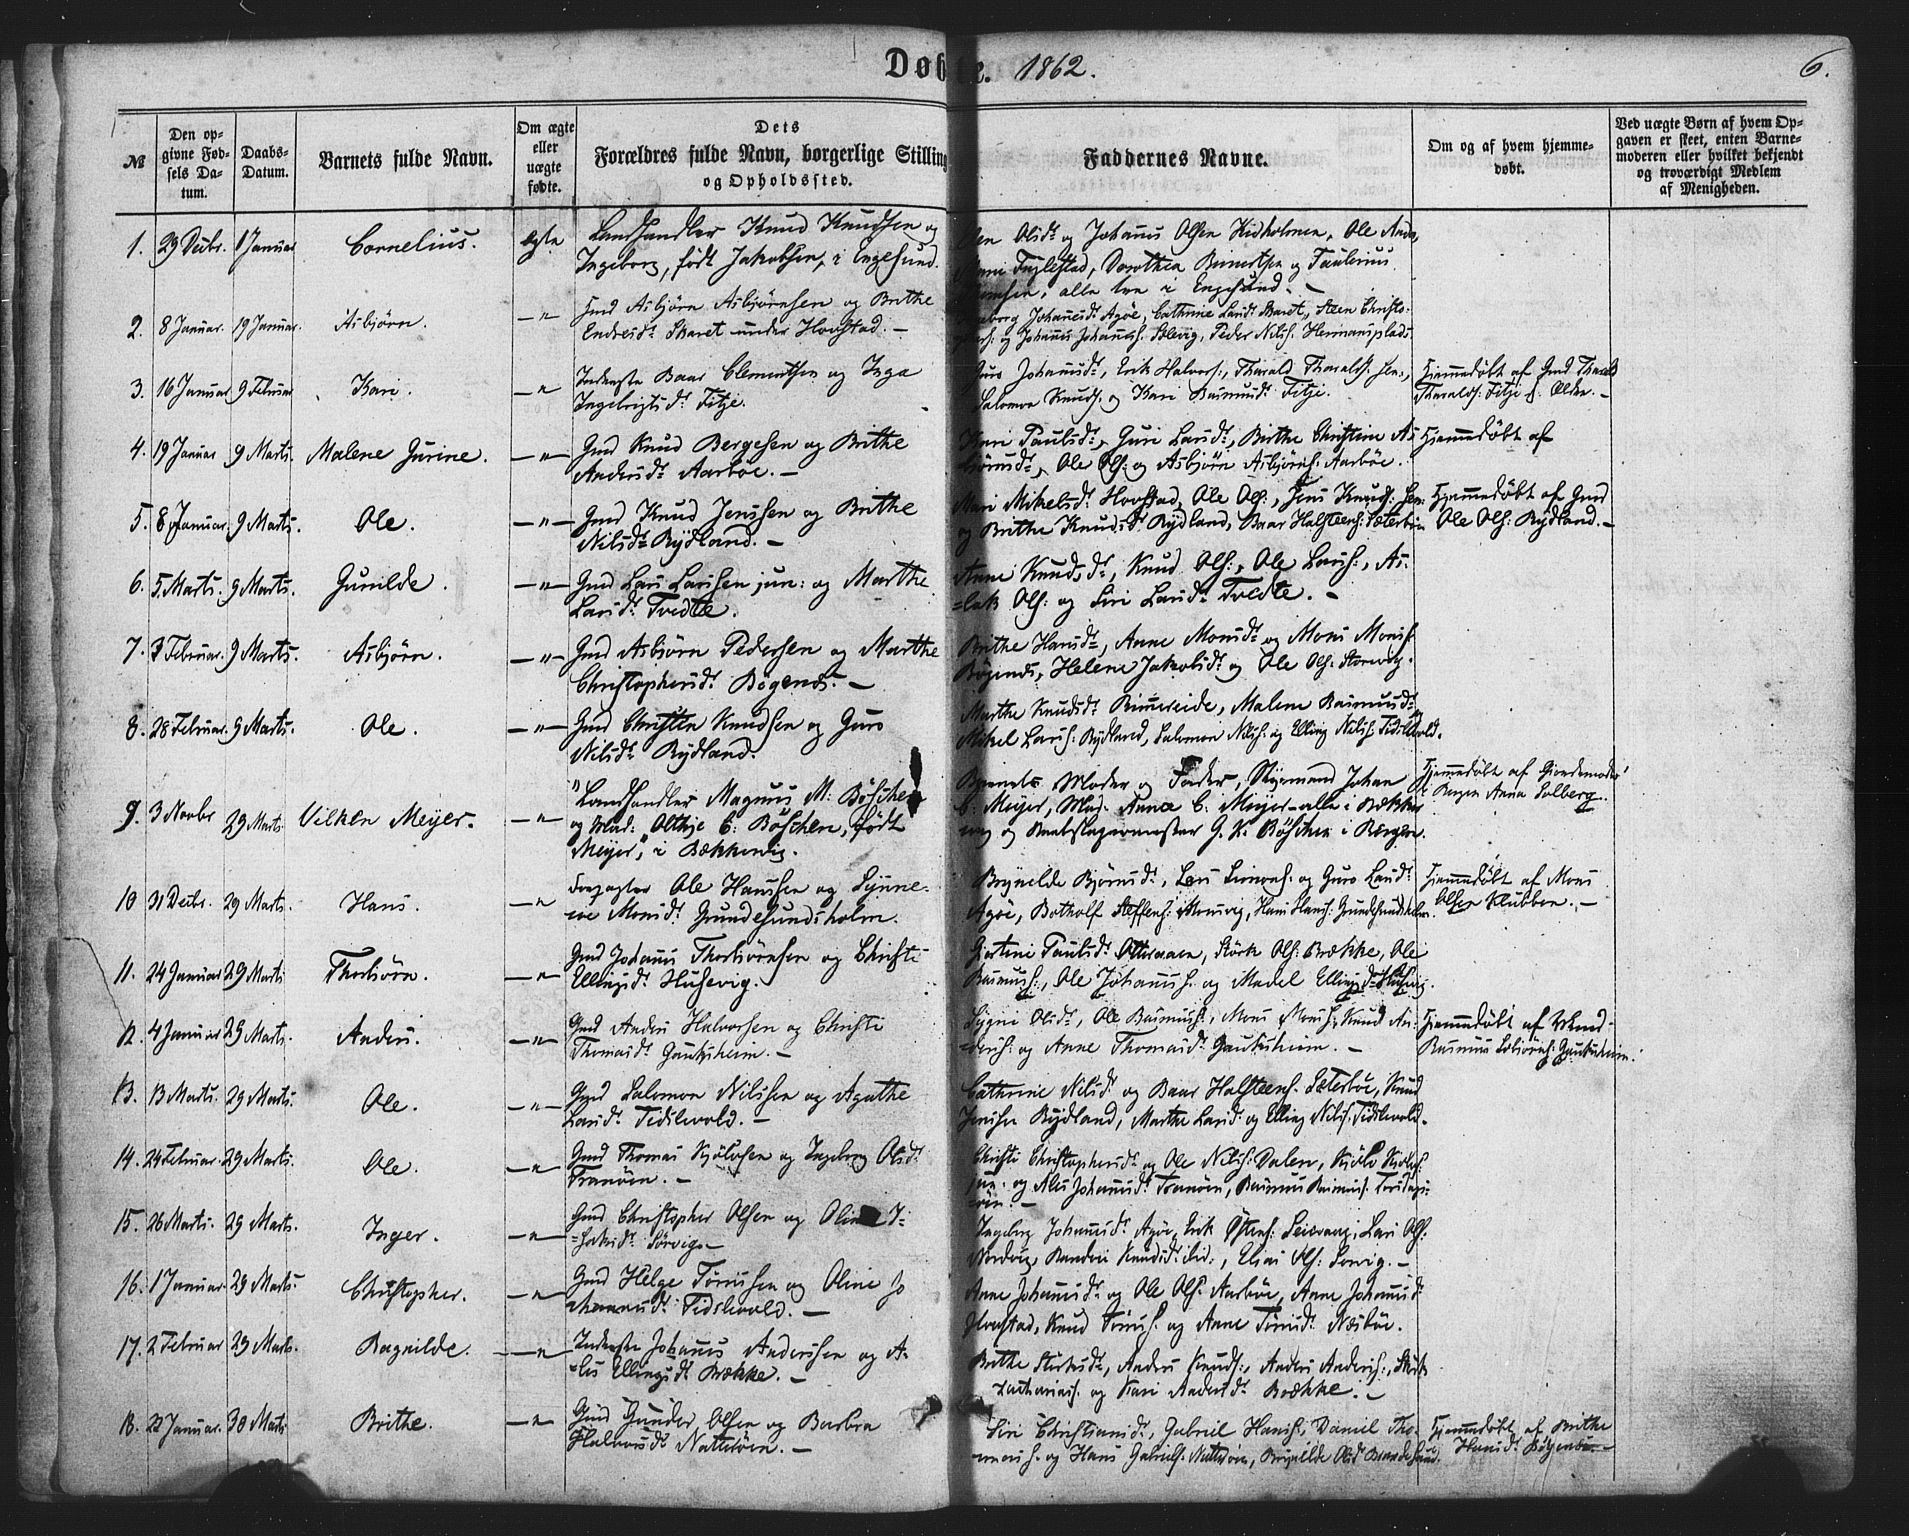 Døbte. 1862. 6.
№
Den op-
givne Fød-
sels Da-
tum.
Daabs-
Datum.
Barnets fulde Navn.
Om ægte
eller
uægte
fødte.
Dets
Forældres fulde Navn, borgerlige Stilling
og Opholdssted.
Faddernes Navne.
Om og af hvem hjemme-
døbt.
Ved uægte Børn af hvem Op-
gaven er skeet, enten Barne-
moderen eller hvilket bekjendt
og troværdigt Medlem
af Menigheden.
1. 29 Decbr. 1 Januar Cornelius. Ægte Landhandler Knud Knudsen og
Ingeborg, født Jakobsen, i Engesund.
Olsdr og Johannes Olsen Kidholmen, Ole
Fuglestad, Dorothea Berentsen og
alle tre i Engesund. —
2. 8 Januar. 19 Januar. Asbjørn. —"— Gmd Asbjørn Asbjørnsen og Brithe
Endresdr Skaret under Hovstad. —
Johannesdr Agøe, Cathrine Larsdr Skaret, Steen Christo-
og Johannes Johanness. Selevig, Peder Nilss. Hermansplads
3. 16 Januar 9 Februar Kari. —"— Inderste Baar Clementsen og Inga
Ingebrigtsdr Fitje.
Guro Johannesdr, Erik Halvors:, Tharald Tharalds: sen:,
Salomon Knuds. og Kari Rasmusdr Fitje.
Hjemmedøbt af Gmd Tharald
Tharalds: Fitje d. Eldre. —
4. 19 Januar 9 Marts. Malene Gurine. —"— Gmd Knud Bergesen og Brithe
Andersdr Aarbøe. —
Kari Paulsdr, Guri Larsdr, Birthe Christine As-
bjørnsdr, Ole Ols: og Asbjørn Asbjørns: Aarbøe.
Hjemmedøbt af
5. 8 Januar. 9 Marts. Ole. —"— Gmd Knud Jenssen og Brithe
Nilsdr Rydland. —
Mari Mikelsdr Hovstad, Ole Ols:, Jens Knuds: sen:
og Brithe Knudsdr Rydland, Baar Halsteens: Sæterbøe
Hjemmedøbt af Gmd
Ole Ols: Rydland. —
6. 5 Marts. 9 Marts. Gunilde. —"— Gmd Lars Larssen jun: og Marthe
Larsdr Tvedte.
Anne Knudsdr, Knud Ols:, Ole Larss:, As-
=lak Ols: og Siri Larsdr Tvedte. —
7. 3 Februar. 9 Marts. Asbjørn. —"— Gmd Asbjørn Pedersen og Marthe
Christophersdr Bøgenes. —
Brithe Hansdr, Anne Monsdr og Mons Monss.
Bøgenes, Helene Jakobsdr og Ole Ols: Storevig.
8. 28 Februar. 9 Marts. Ole. —"— Gmd Christen Knudsen og Guro
Nilsdr Rydland.
Marthe Knudsdr Rimereide, Malene Rasmusdr,
Mikel Larss: Rydland, Salomon Nilss: og Elling Nilss: Tidslevold.
9. 3 Novbr 29 Marts Vilken Meyer. —"— Landhandler Magnus M. Bøschen
og Mad: Althje C: Bøschen, født
Meyer, i Bekkervig.
Barnets Moder og Fader, Styrmand Johan
C: Meyer, Mad. Anna C. Meyer — alle i Bekker
vig og G. K. Bøschen i Bergen.
Hjemmedøbt af Gjordemoder
i Bergen Anna Solberg.
10 31 Decbr. 29 Marts. Hans. —"— Forpagter Ole Hanssen og Synne-
ve Monsdr Grundesundsholm.
Brynilde Bjørnsdr, Lars Simons: og Guro Larsdr
Agøe, Botholf Steffens: Monsvig, Hans Hans: Grundesundsholm.
Hjemmedøbt af Mons
Olsen Klubben. —
11. 24 Januar 29 Marts Thorbiørn. —"— Gmd Johannes Thorbiørnsen og Christi
Ellingsdr Husevig.
Giertine Paulsdr Otteraaen, Størk Ols: Brække, Ole
Rasmuss:, Ole Johanness. og Madel Ellingsdr Husevig.
12. 4 Januar 29 Marts. Anders. —"— Gmd Anders Halvorsen og Christi
Thomasdr Goutesheim. —
Sygni Olsdr, Ole Rasmuss., Mons Monss., Knud An-
=derss: og Anne Thomasdr Goutesheim. —
Hjemmedøbt af
Rasmus Goutesheim.
13. 13 Marts. 29 Marts. Ole. —"— Gmd Salomon Nilssen og Agathe
Larsdr Tidslevold. —
Cathrine Nilsdr og Baar Halsteens. Sæterbøe, Knud
Jenssen Rydland, Marthe Larsdr og Elling Nilss. Tidslevold.
14. 24 Februar. 29 Marts. Ole. —"— Gmd Thomas Kjølvsen og Ingeborg Olsdr
Tranøen. —
Christi Christophersdr og Ole Nilss: Dalen, Kjølv Kjølvs:
jun. og Ales Johannesdr Tranøen, Rasmus Rasmuss.
15. 26 Marts. 29 Marts. Inger. —"— Gmd Christopher Olsen og Oline I-
Sørvig. —
Ingeborg Johannesdr Agøe, Erik Lars Ols.
Nordvig, Knudsdr ibid:, Elias Ols: Sørvig. —
16. 1 Januar. 29 Marts Christopher. —"— Gmd Helge Tørrissen og Oline Jo
hannesdr Tidslevold. —
Anne Johannesdr og Ole Ols. Aarbøe, Anne Johannesdr
Hovstad, Knud Tørriss. og Anne Tørrisdr Næsbøe.
17. 2 Februar 29 Marts. Ragnilde. —"— Inderste Johannes Anderssen og A-
=les Ellingsdr Brække. —
Brithe Størksdr, Anders Knuds:, Anders Anderss:, Størk
Zachariass. og Kari Andersdr Brække. —
18. 22 Januar. 30 Marts Brithe. —"— Gmd Gunder Olsen og Barbra
Halvorsdr Nattøen. —
Siri Christiansdr, Gabriel Hanss:, Daniel Tho-
=mass. og Hans Gabriels. Nattøen, Brynilde Olsdr Brandesund.
Hjemmedøbt af Brithe
Hansdr Bøgenes. —